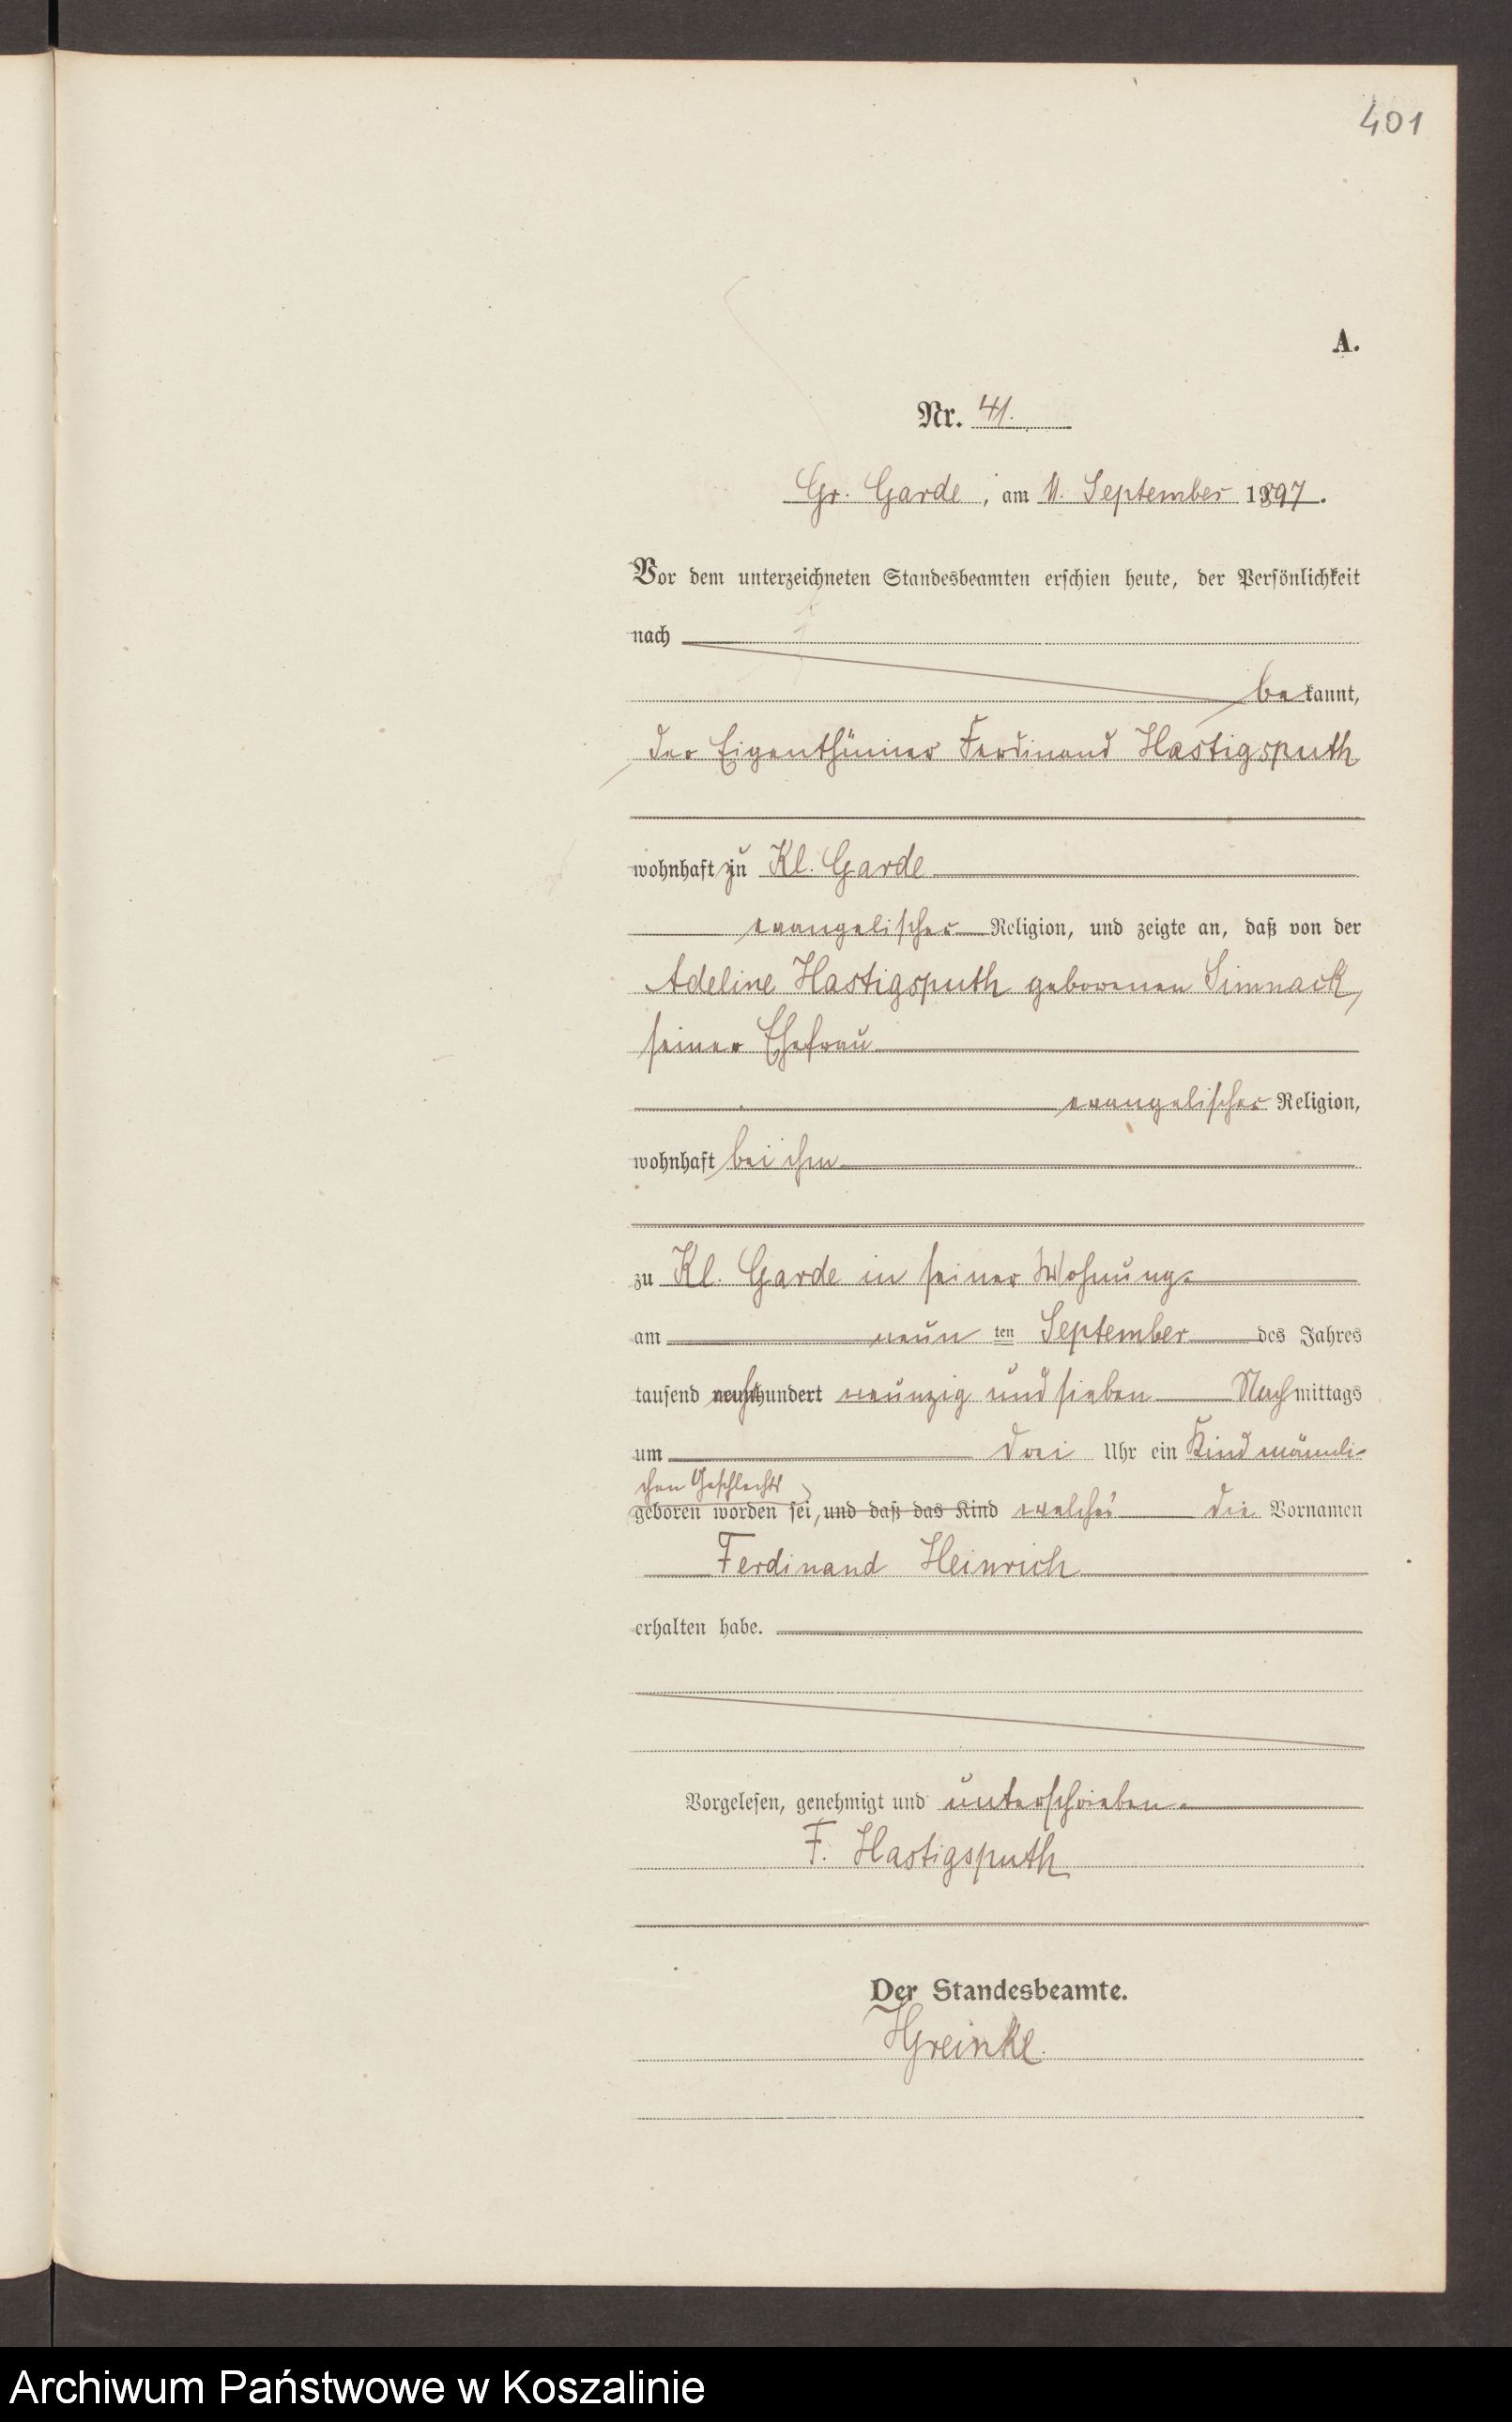 401
A.
Nr. 41.
Gr. Garde, am 11. September 1897.
Vor dem unterzeichneten Standesbeamten erschien heute, der Persönlichkeit
nach
bekannt,
der Eigenthümer Ferdinand Hastigsputh
wohnhaft zu Kl. Garde
evangelischer Religion, und zeigte an, daß von der
Adeline Hastigsputh geborenen Simnack,
seiner Ehefrau
evangelischer Religion,
wohnhaft bei ihm
zu Kl. Garde in seiner Wohnung
am neun ten September des Jahres
tausend achthundert neunzig und sieben Nachmittags
um drei Uhr ein Kind männli-
chen Geschlechts
geboren worden sei, und daß das Kind welches die Vornamen
Ferdinand Heinrich
erhalten habe.
Vorgelesen, genehmigt und unterschrieben.
F. Hastigsputh
Der Standesbeamte.
HGreinke.
Archiwum Państwowe w Koszalinie